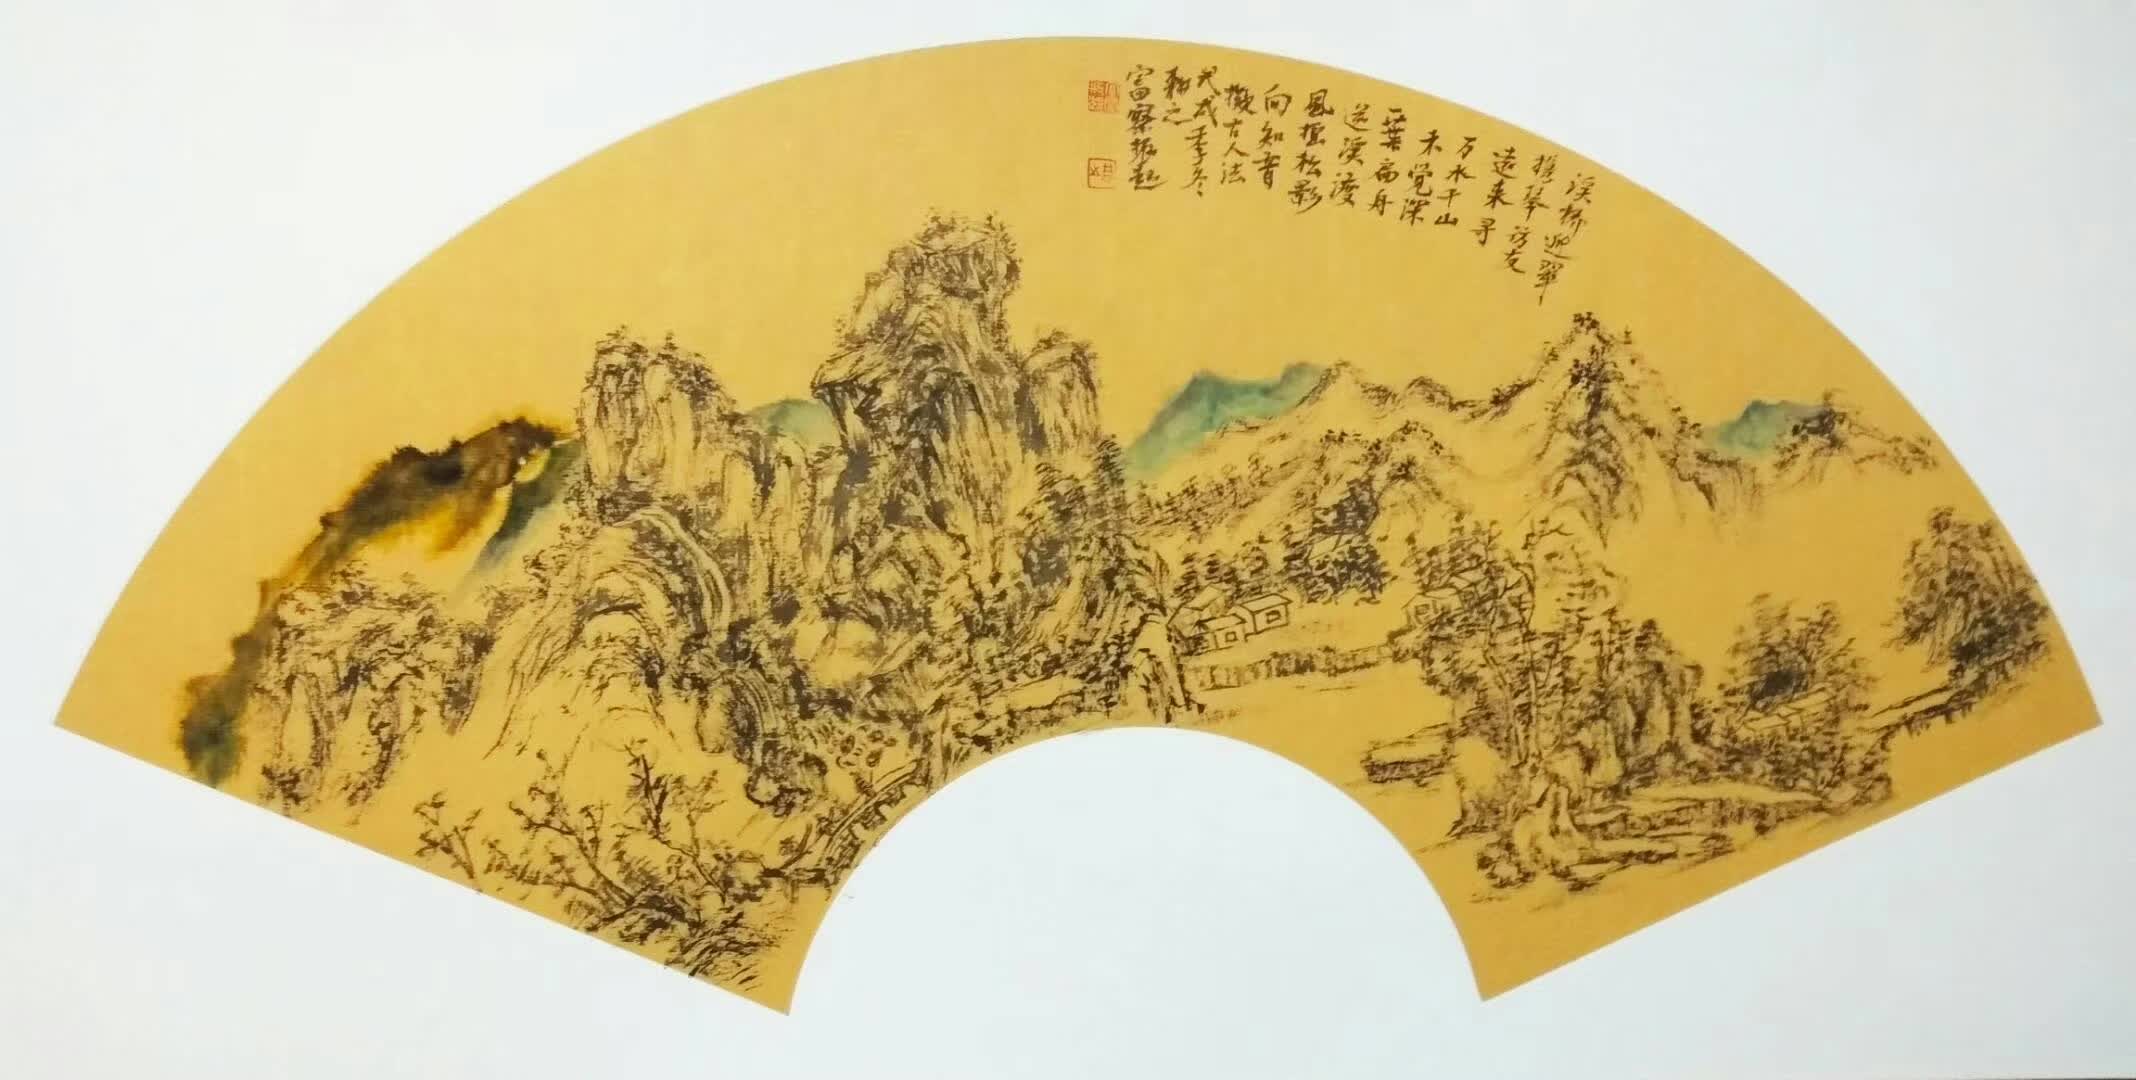 溪桥迎翠
携琴访友
远来寻
万水千山
未觉深
一叶扁舟
送溪渡
风摇松影
向知音
拟古人法
戊戌季冬
翰之
富察振起